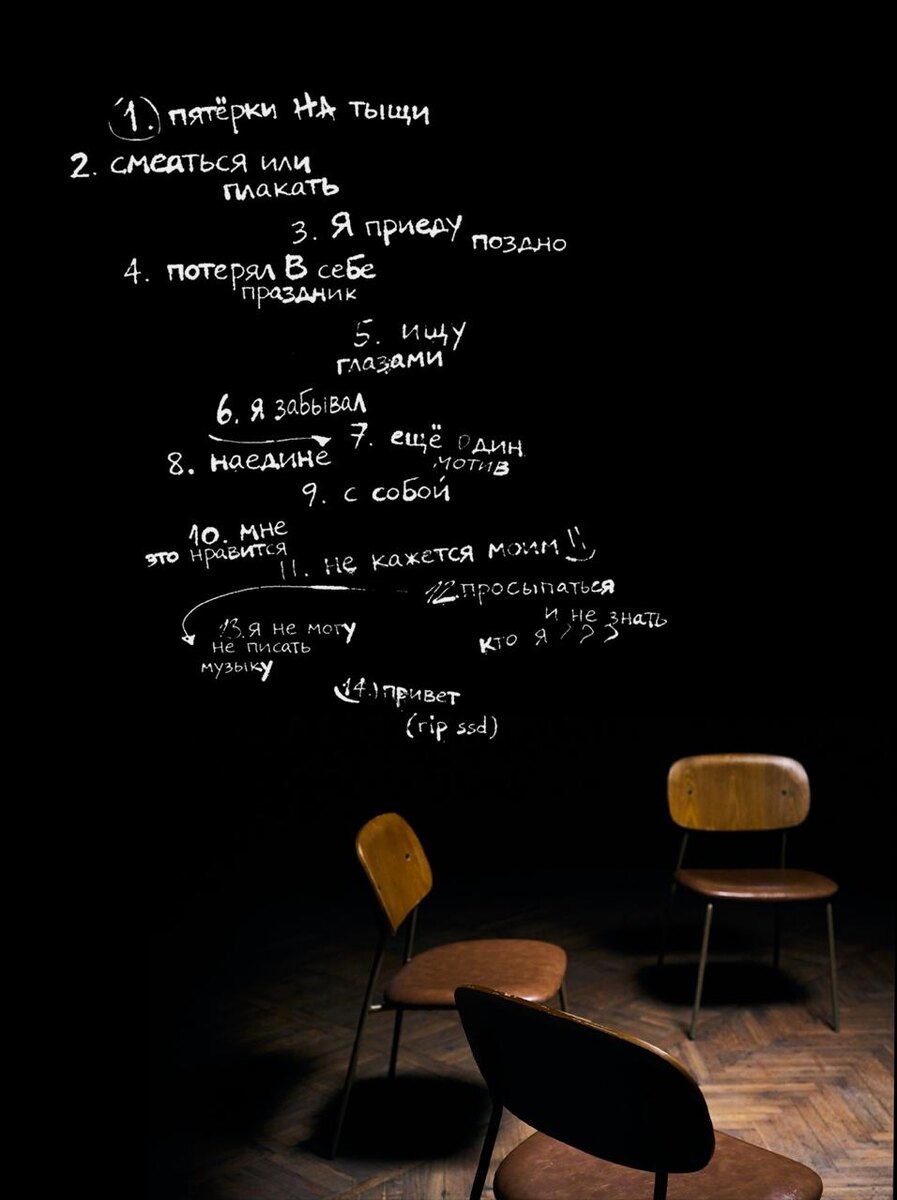 1. пятёрки на тыщи
2. смеяться или
плакать
3. Я приеду
поздно
4. потерял в себе
праздник
5. ищу
глазами
6. я забывал
7. ещё один
мотив
8. наедине
9. с собой
10. мне
это нравится
11. не кажется моим !!
12. просыпаться
и не знать
кто я ???
13. я не могу
не писать
музыку
14.) привет
(rip ssd)